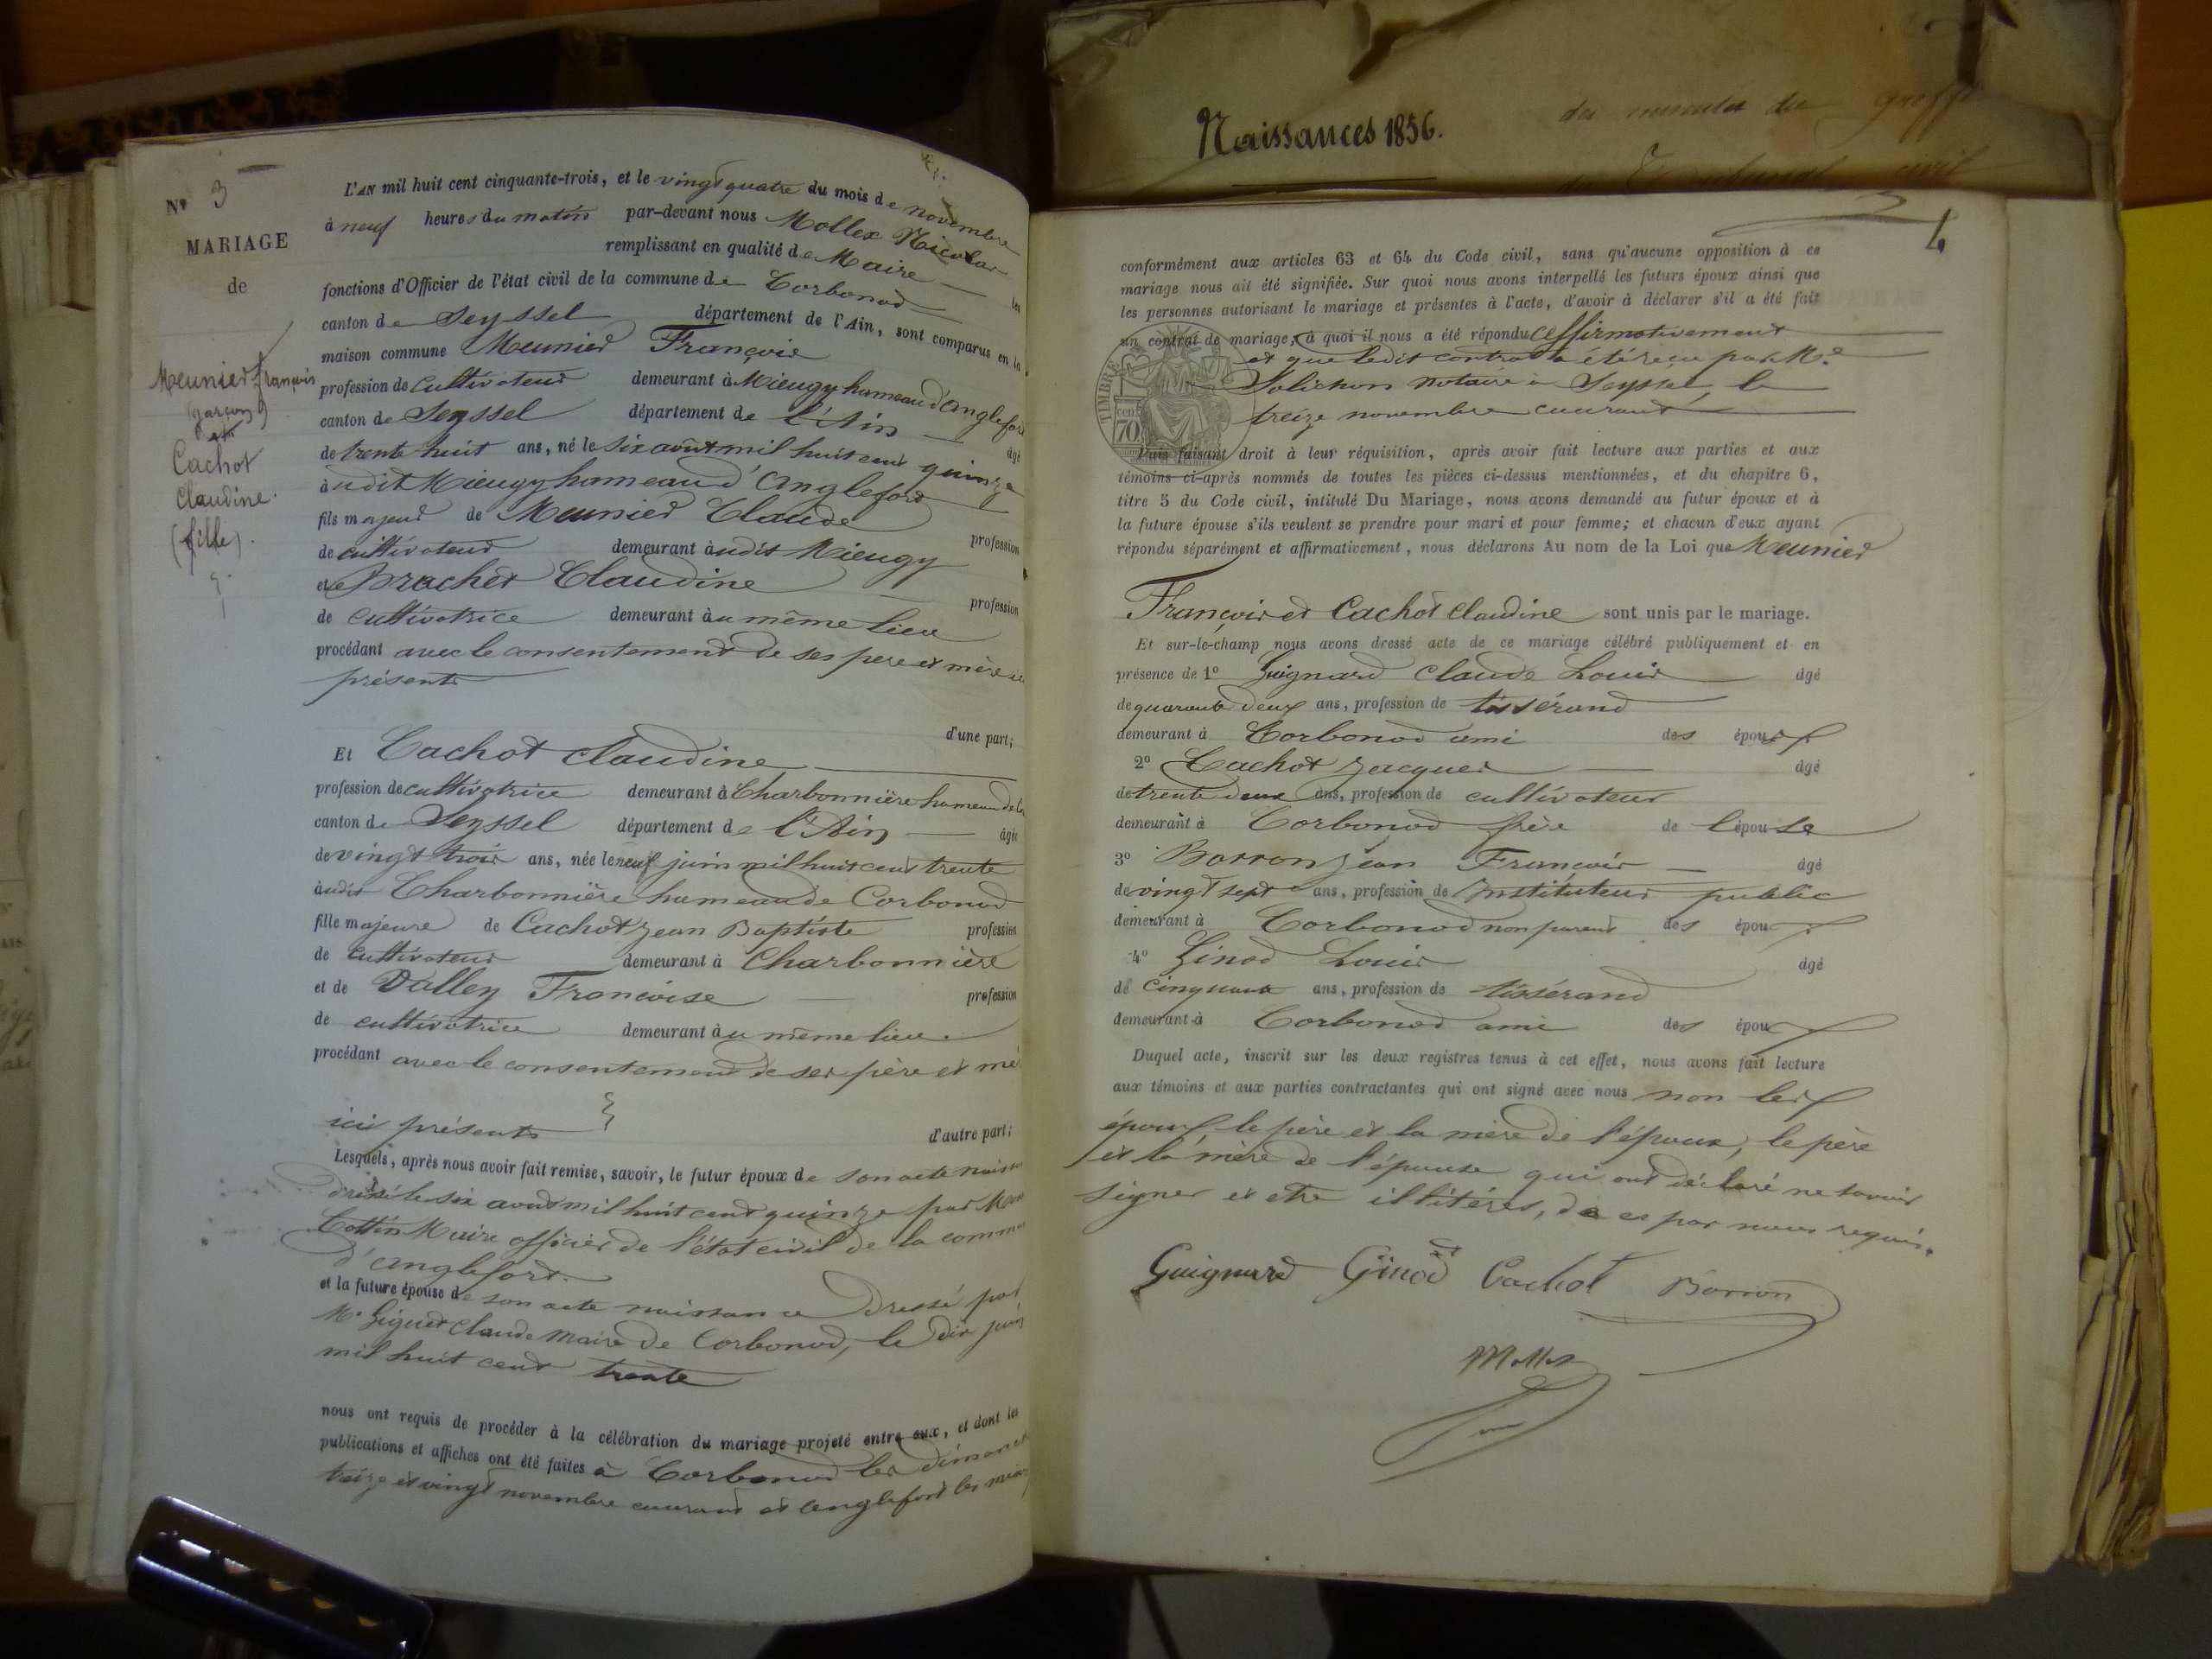 Nº 3
MARIAGE
de
Meunier françois
(garçon)
et
Cachot
Claudine.
(fille).
L'AN mil huit cent cinquante-trois, et le vingt quatre du mois de novembre
à neuf heures du matin par-devant nous Mollex Nicolas
remplissant en qualité de Maire les
fonctions d'Officier de l'état civil de la commune de Corbonod
canton de Seyssel département de l'Ain, sont comparus en la
maison commune Meunier François
profession de cultivateur demeurant à Mieugy hameau d'anglefort
canton de Seyssel département de l'Ain âgé
de trente huit ans, né le six août mil huit cent quinze
à udit Mieugy hameau d'anglefort
fils majeur de Meunier Claude profession
de cultivateur demeurant à udit Mieugy
et de Brachet Claudine profession
de cultivatrice demeurant à u même lieu
procédant avec le consentement de ses pere et mère ici
présents
d'une part;
Et Cachot Claudine
profession de cultivatrice demeurant à Charbonnière hameau de
canton de Seyssel département de l'Ain âgée
de vingt trois ans, née le neuf juin mil huit cent trente
à udit Charbonnière hameau de Corbonod
fille majeure de Cachot Jean Baptiste profession
de cultivateur demeurant à Charbonnière
et de Dalley Françoise profession
de cultivatrice demeurant à u même lieu.
procédant avec le consentement de ses père et mè
ici présents
d'autre part;
Lesquels, après nous avoir fait remise, savoir, le futur époux de son acte naiss
dressé le six août mil huit cent quinze par
Cottin Maire officier de l'état civil de la comm
d'anglefort.
et la future épouse de son acte naissance dressé par
Mr Giguet Claude Maire de Corbonod, le dix juin
mil huit cent trente
nous ont requis de procéder à la célébration du mariage projeté entre eux, et dont les
publications et affiches ont été faites à Corbonod les dimanch
treize et vingt novembre courant et anglefort les
Naissances 1856.
du greffe
Tribunal civil
4
conformément aux articles 63 et 64 du Code civil, sans qu'aucune opposition à ce
mariage nous ait été signifiée. Sur quoi nous avons interpellé les futurs époux ainsi que
les personnes autorisant le mariage et présentes à l'acte, d'avoir à déclarer s'il a été fait
un contrat de mariage, à quoi il nous a été répondu affirmativement
et que ledit contrat a été reçu par Me
notaire à Seyssel, le
treize novembre courant
TIMBRE
cent
70
Puis faisant droit à leur réquisition, après avoir fait lecture aux parties et aux
témoins ci-après nommés de toutes les pièces ci-dessus mentionnées, et du chapitre 6,
titre 5 du Code civil, intitulé Du Mariage, nous avons demandé au futur époux et à
la future épouse s'ils veulent se prendre pour mari et pour femme; et chacun d'eux ayant
répondu séparément et affirmativement, nous déclarons Au nom de la Loi que Meunier
François et Cachot Claudine sont unis par le mariage.
Et sur-le-champ nous avons dressé acte de ce mariage célébré publiquement et en
présence de 1º Guignard Claude Louis âgé
de quarante deux ans, profession de tissérand
demeurant à Corbonod ami des époux
2º Cachot Jacques âgé
de trente deux ans, profession de cultivateur
demeurant à Corbonod frère de l'épouse
3º Borron Jean François âgé
de vingt sept ans, profession de Instituteur public
demeurant à Corbonod non parent des époux
4º Ginod Louis âgé
de cinquante ans, profession de tissérand
demeurant à Corbonod ami des époux
Duquel acte, inscrit sur les deux registres tenus à cet effet, nous avons fait lecture
aux témoins et aux parties contractantes qui ont signé avec nous non les
époux, le père et la mère de l'époux, le père
et la mère de l'épouse qui ont déclaré ne savoir
signer et etre illitérés, de ce par nous requis.
Guignard Ginod Cachot Borron
Mollex